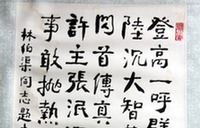 登高一呼群
陸沉大智
同首傳真
許主張泯
事敢挑熱
林伯渠同志題